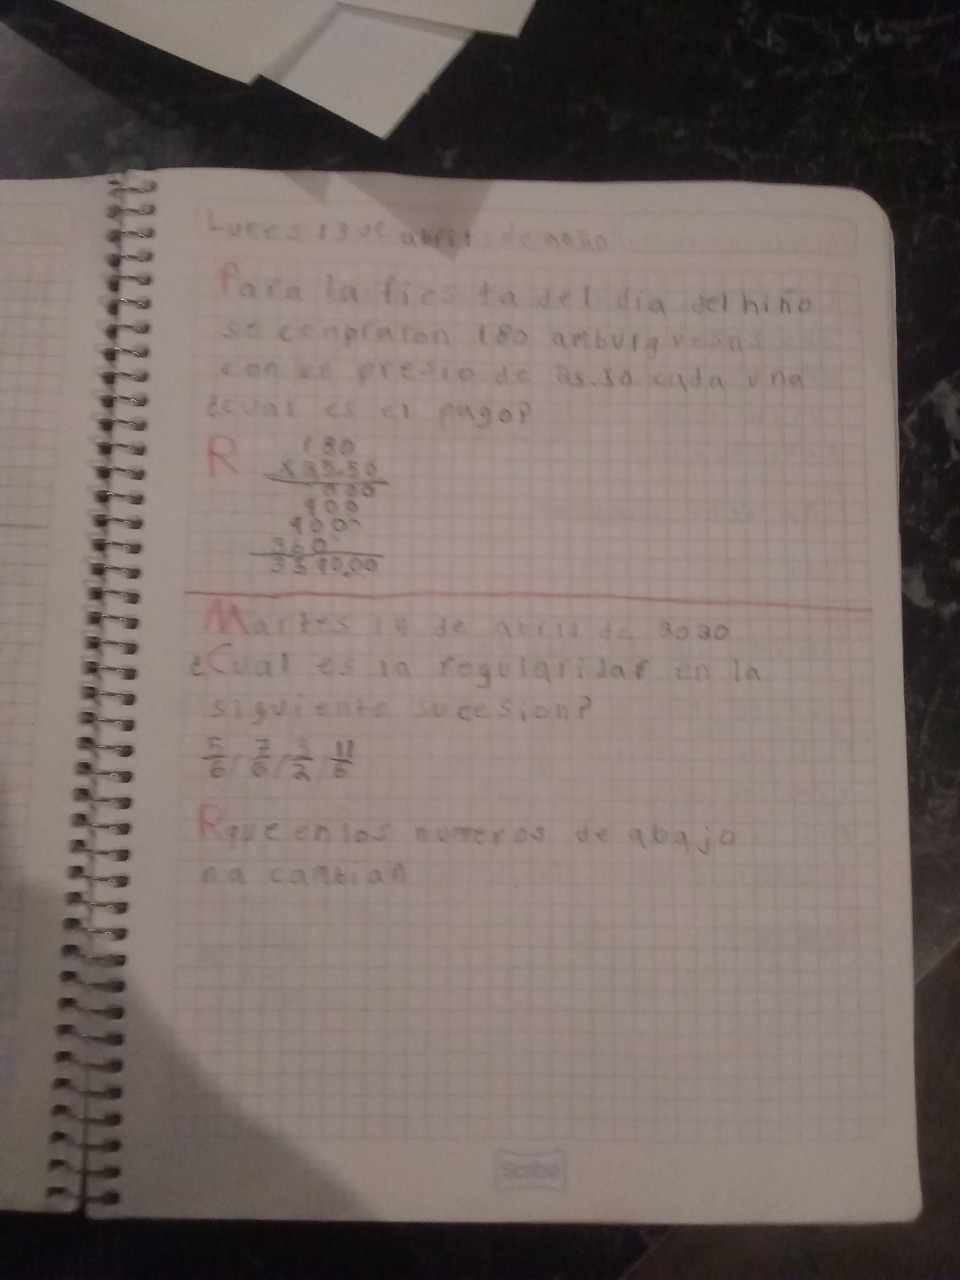 Lunes 13 de abril de 2020
Para la fiesta del dia del niño
se compraron 180 amburguesas
con un presio de 25.50 cada una
¿cual es el pago?
R 180
x25.50
000
900
900
360
Martes 14 de abril de 2020
¿Cual es la regularidar en la
siguiente sucesion?
5/6, 7/6, 3/2, 11/6
R que en los numeros de abajo
na cambian
Scribe